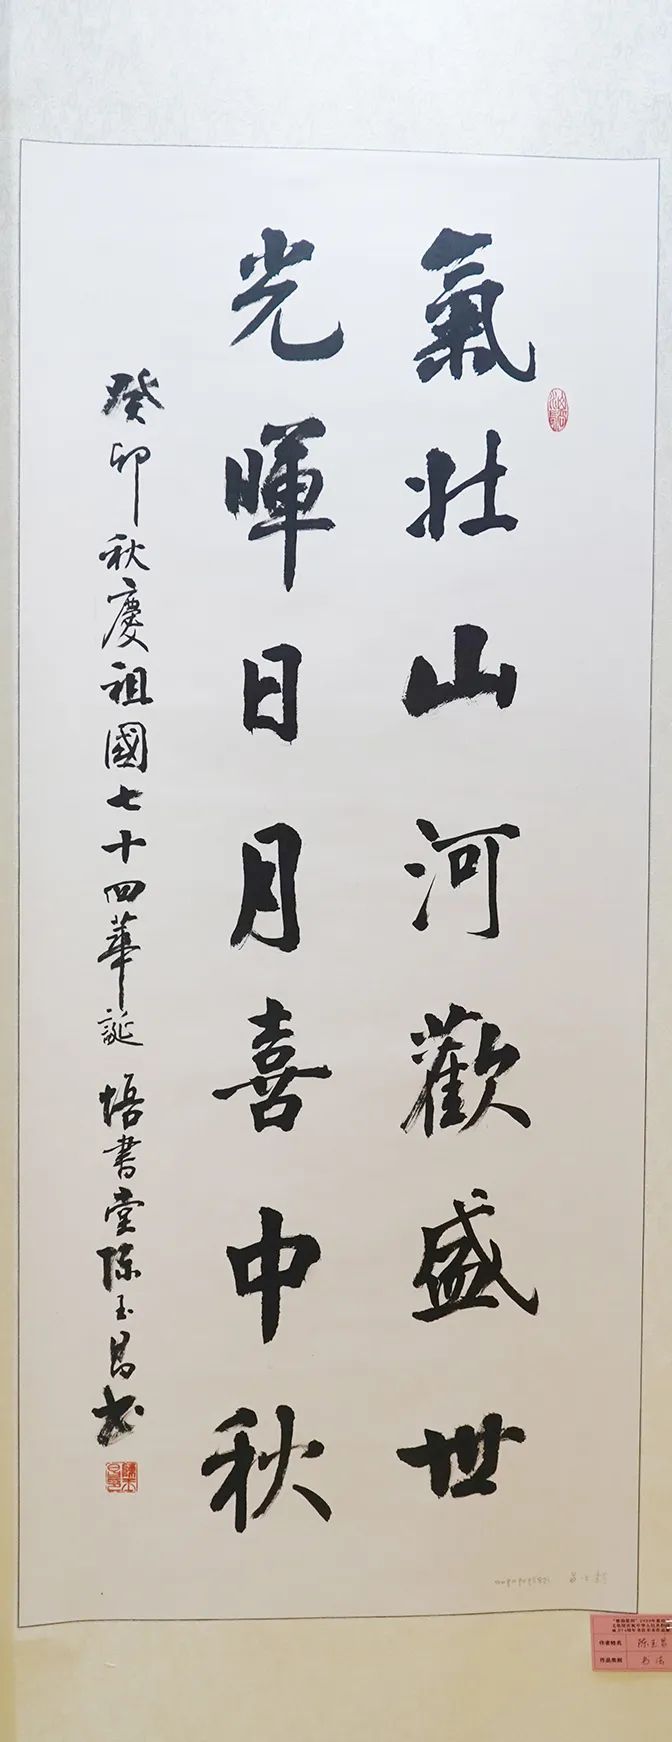 氣壯山河歡盛世
光暉日月喜中秋
癸卯秋慶祖國七十四華誕 悟書堂陈玉昌书
作者姓名 陈玉昌
作品类别 书法